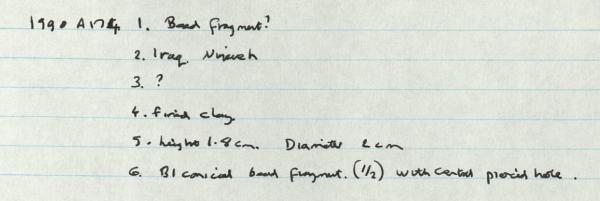 1990 A174 1. Bead fragment?
2. Iraq. Nineveh
3. ?
4. fired clay
5. height 1.8cm. Diameter 2cm
6. Biconical bead fragment. (1/2) with central pierced hole.